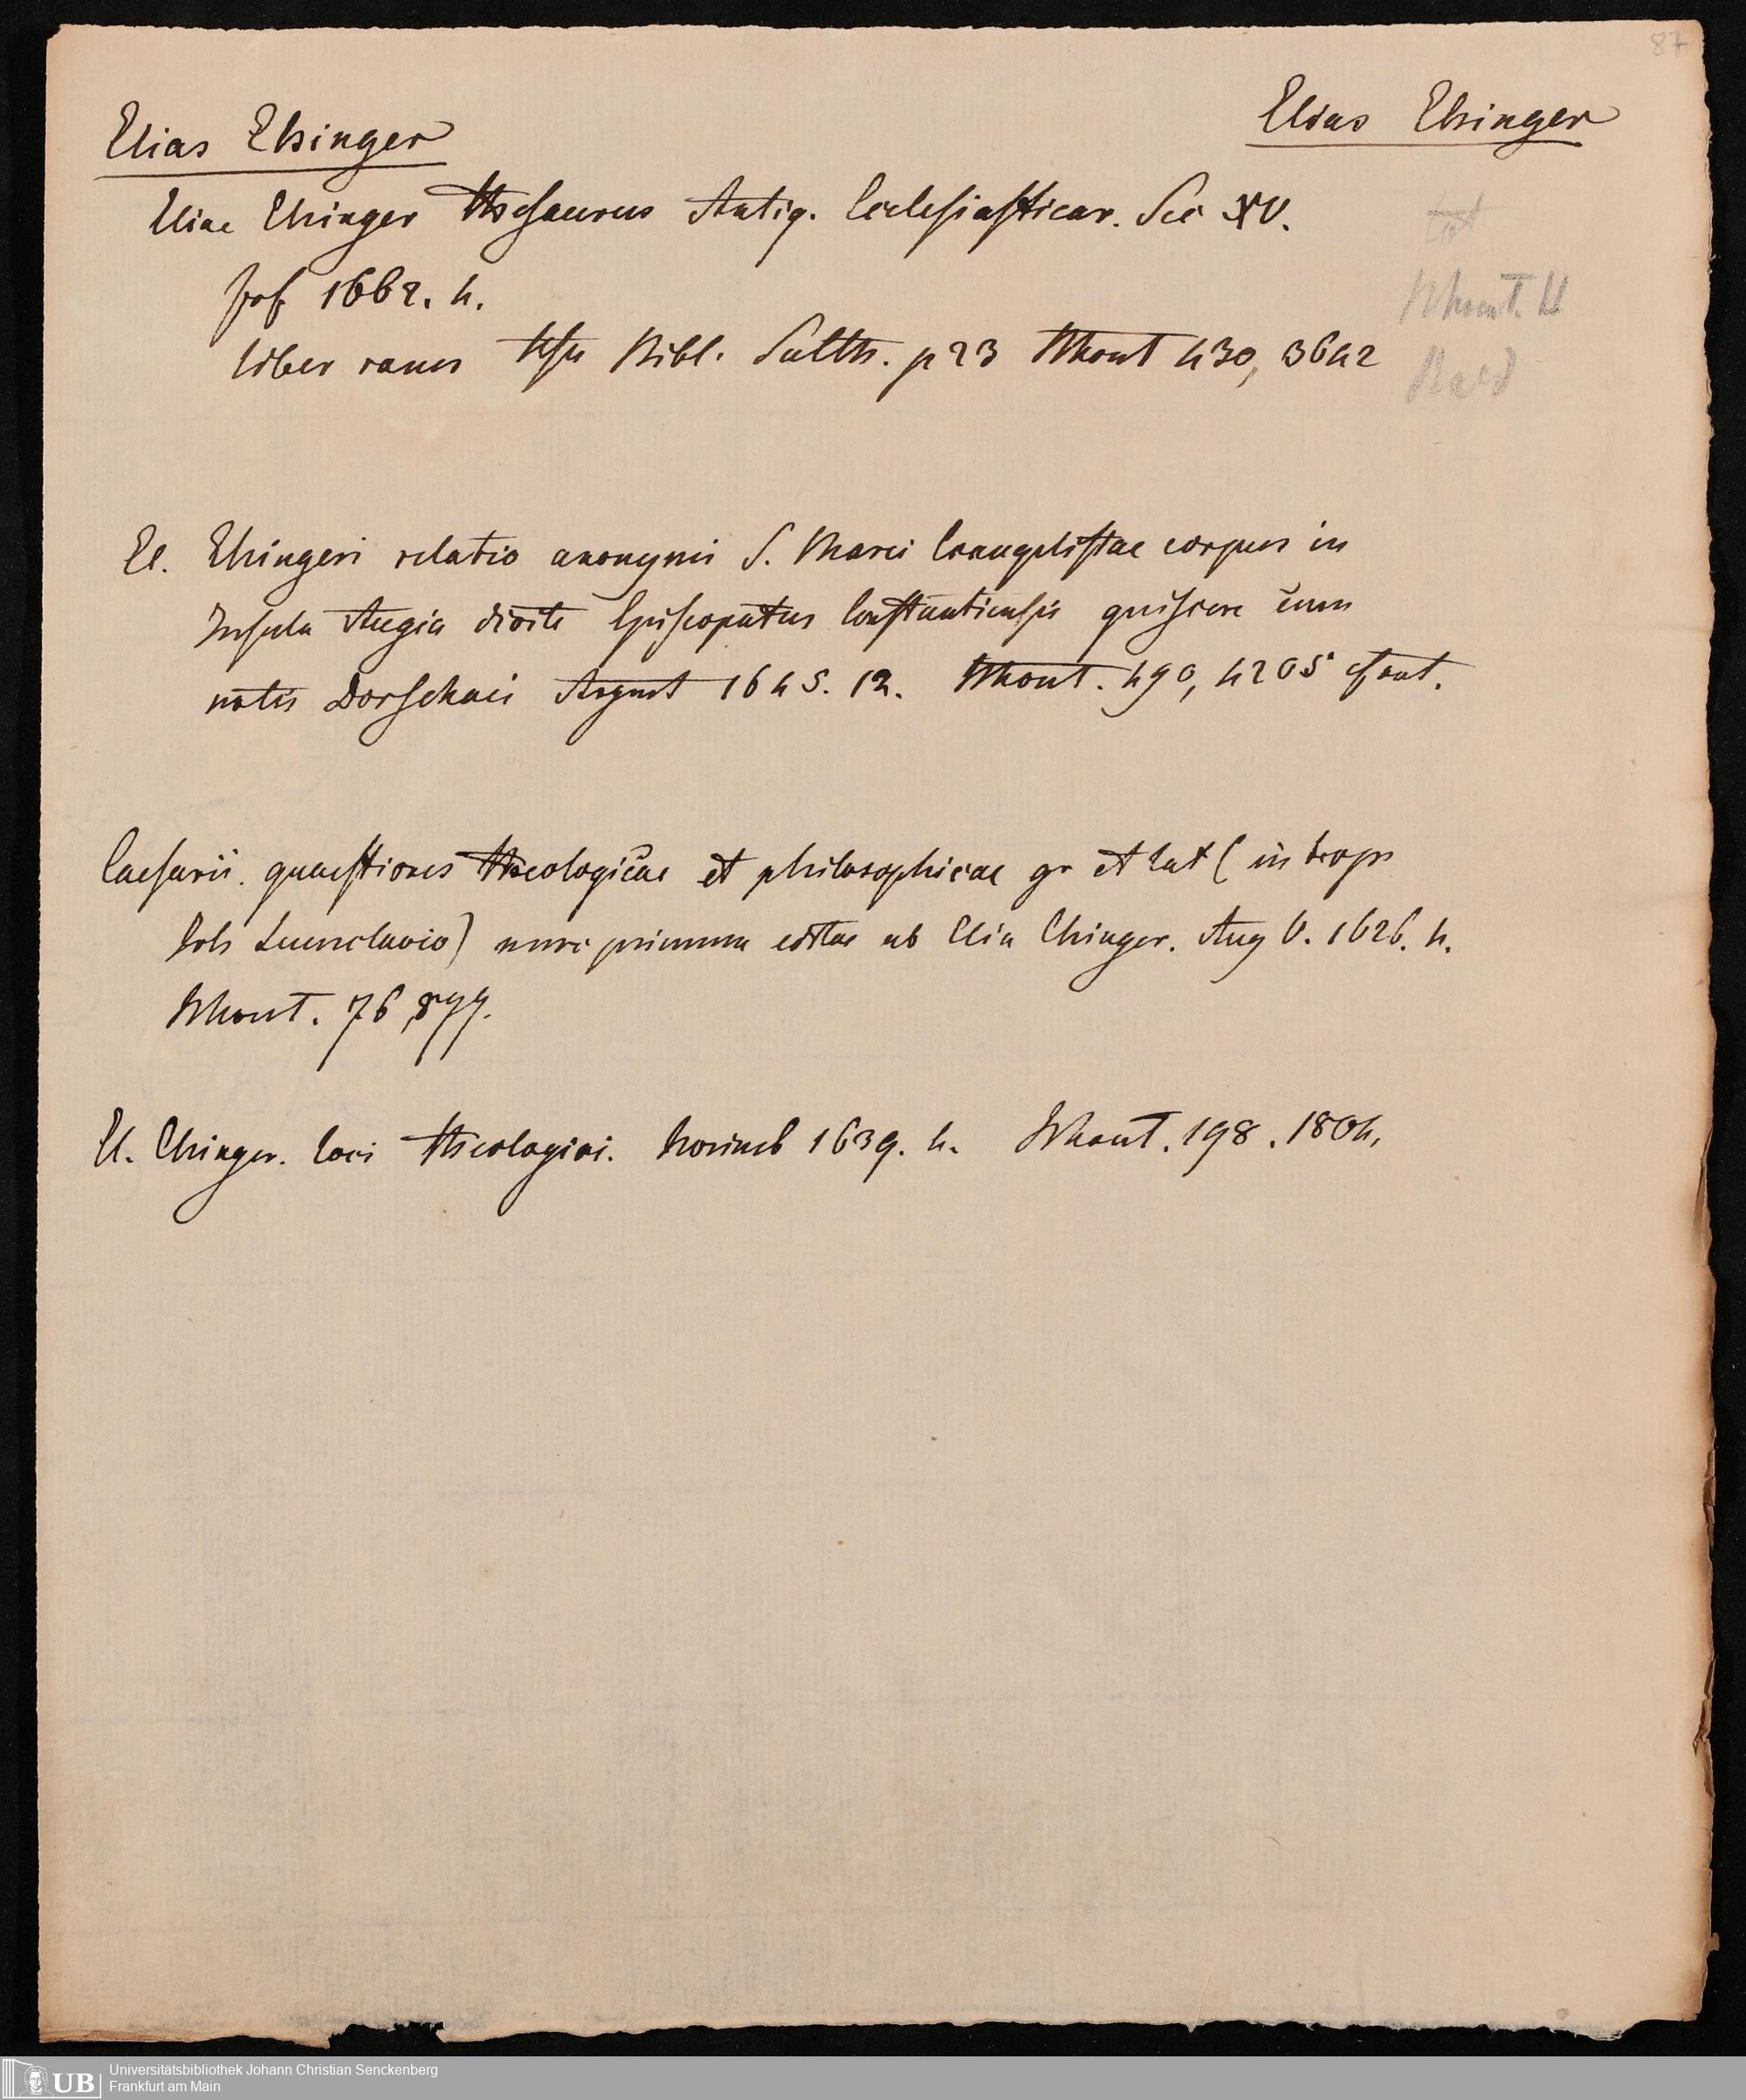 87
Elias Ehinger
Elias Ehinger
Eliae Ehinger Thesaurus Antiq. Ecclesiasticar. Sec XV.
Frf 1662. 4.
liber rarus teste Bibl. Salth. p 23 Mont 430, 3642
tot
Mont. II
El. Ehingeri relatio anonymi S. Marci Evangelistae corpus in
Insula Augia divite Episcopatus Constantiensis quiscere cum
notis Dorschaei August 1645. 12. Mont. 490, 4205
Caesarii. quaestiones theologicae et philosophicae gr et lat (interpr
Joh Leunclavio) nunc primum editae ab Elia Ehinger. Aug V. 1626. 4.
Mont. 76,899.
El. Ehinger. loci theologici. Norimb 1639. 4. Mont. 198. 1804.
UB
Universitätsbibliothek Johann Christian Senckenberg
Frankfurt am Main